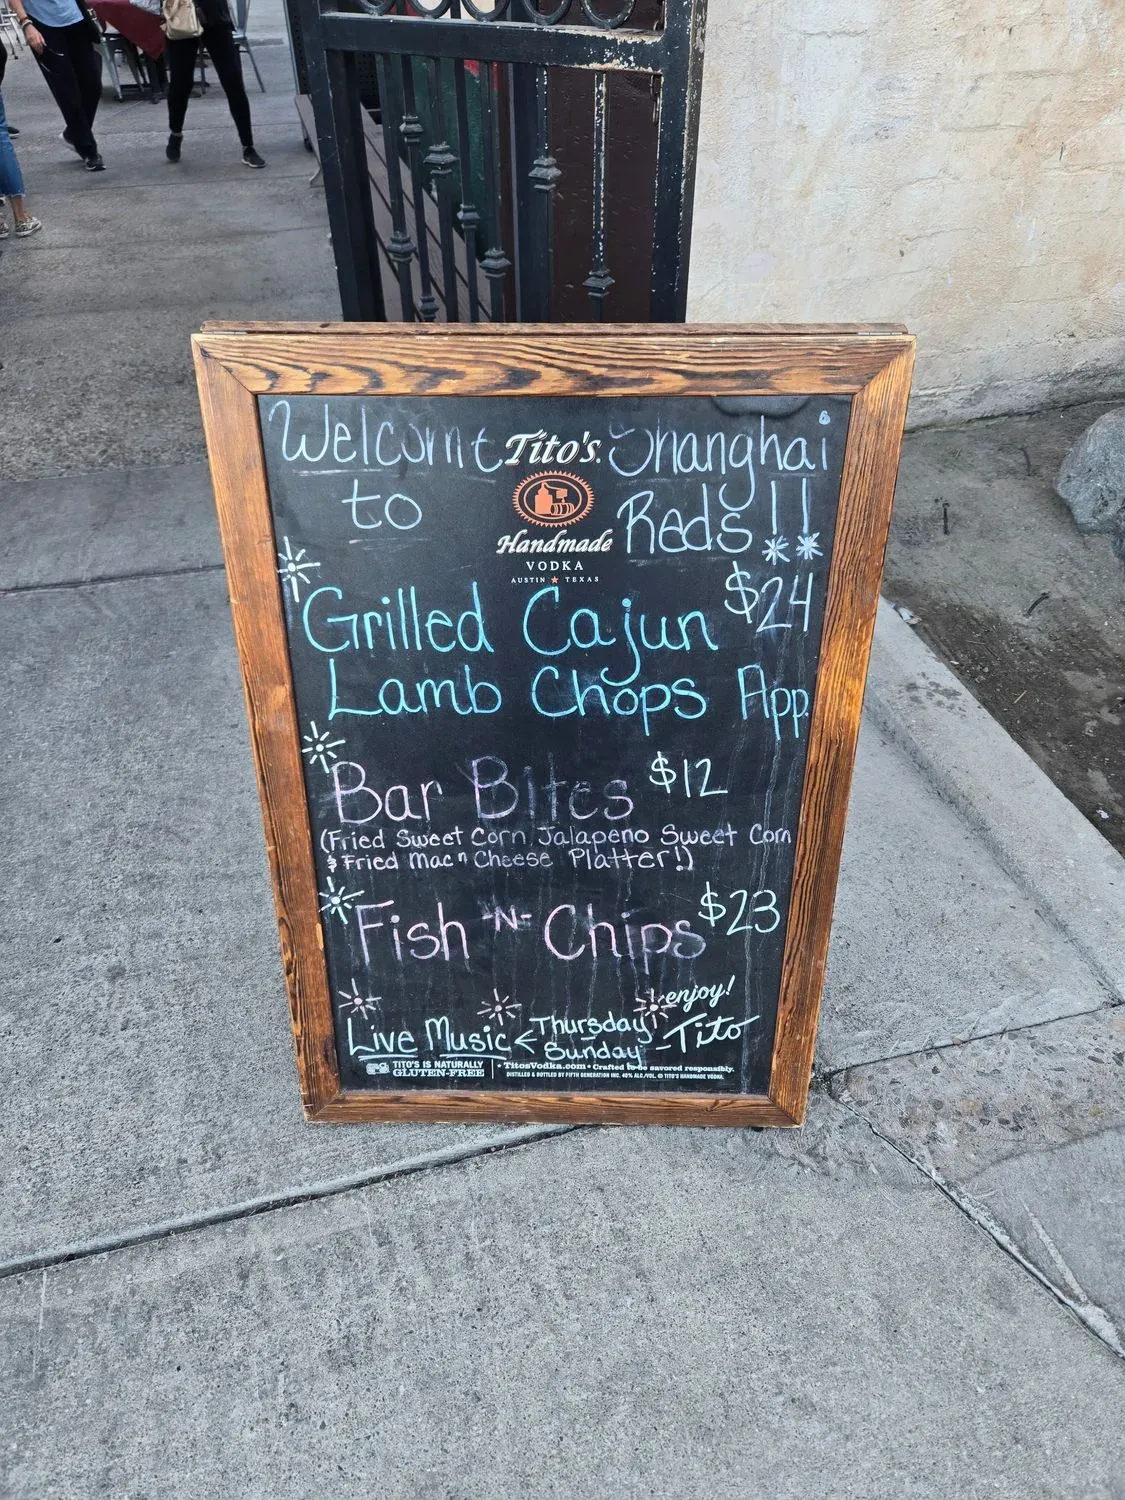 Welcome Tito's. Shanghai
to Reds!!
Handmade
VODKA
AUSTIN ★ TEXAS
$24
Grilled Cajun
Lamb Chops App.
Bar Bites $12
(Fried Sweet Corn, Jalapeno Sweet Corn
& Fried Mac n Cheese Platter!)
Fish -N- Chips $23
enjoy!
Live Music < Thursday
Sunday
-Tito
TITO'S IS NATURALLY
GLUTEN-FREE
• TitosVodka.com • Crafted to be savored responsibly.
DISTILLED & BOTTLED BY FIFTH GENERATION INC. 40% ALC./VOL. © TITO'S HANDMADE VODKA.